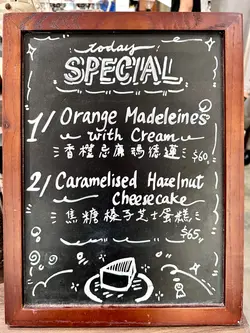 today
SPECIAL
1/ Orange Madeleines
with Cream
香橙忌廉瑪德蓮 $60
2/ Caramelised Hazelnut
Cheesecake
焦糖榛子芝士蛋糕
$65